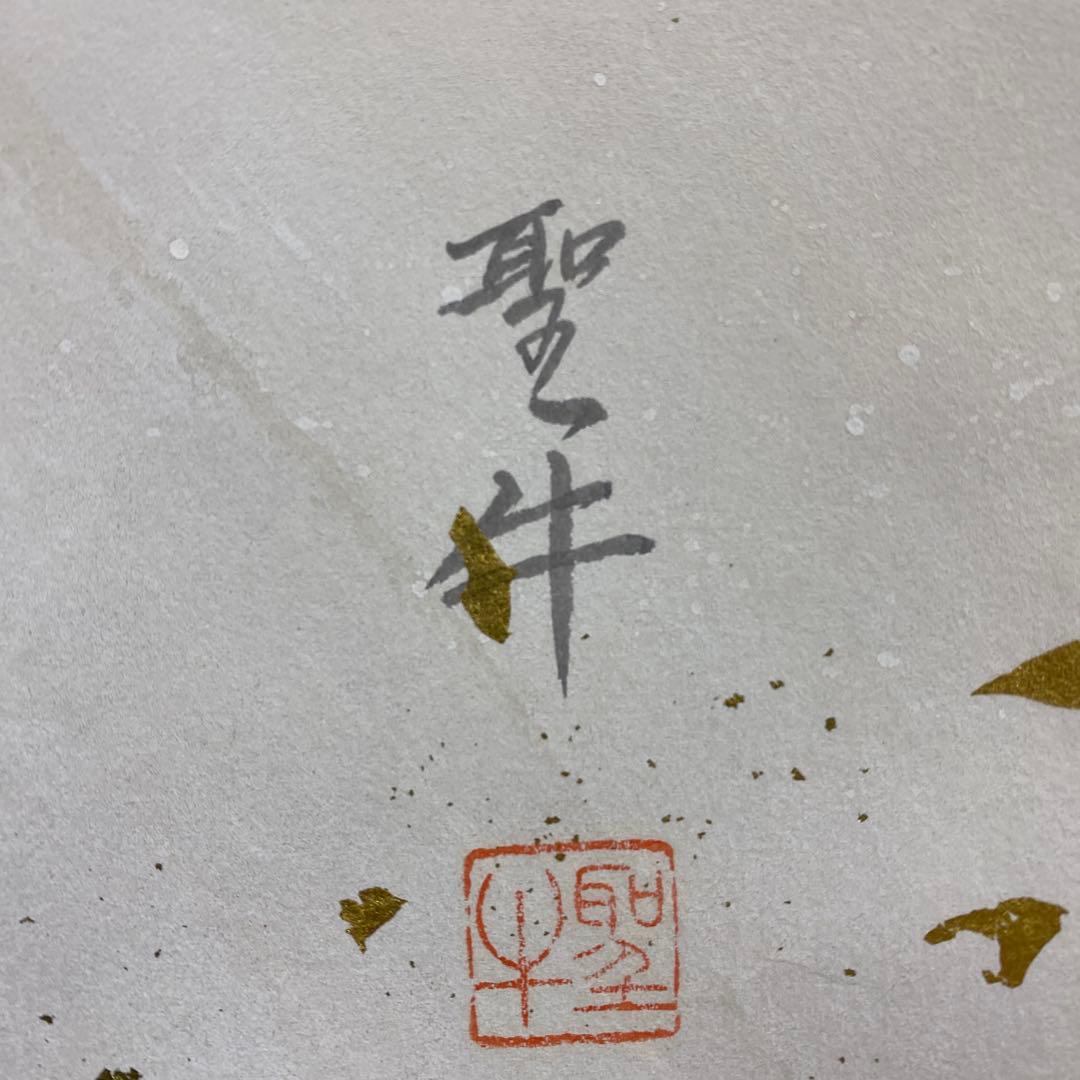 聖牛
聖牛